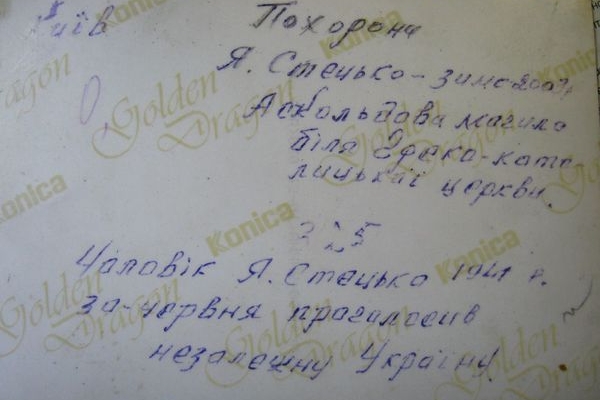 Київ
Похорона
Я. Стецько - зима 2003
Аскольдова магила
біля Греко-като
лицькаї церкви.
325
Чаловік Я. Стецько 1941 р.
30 червня прагаласив
незалежну Україну
Konica
Golden Dragon
Konica
Golden Dragon
Konica
Konica
Konica
Golden Dragon
Golden Dragon